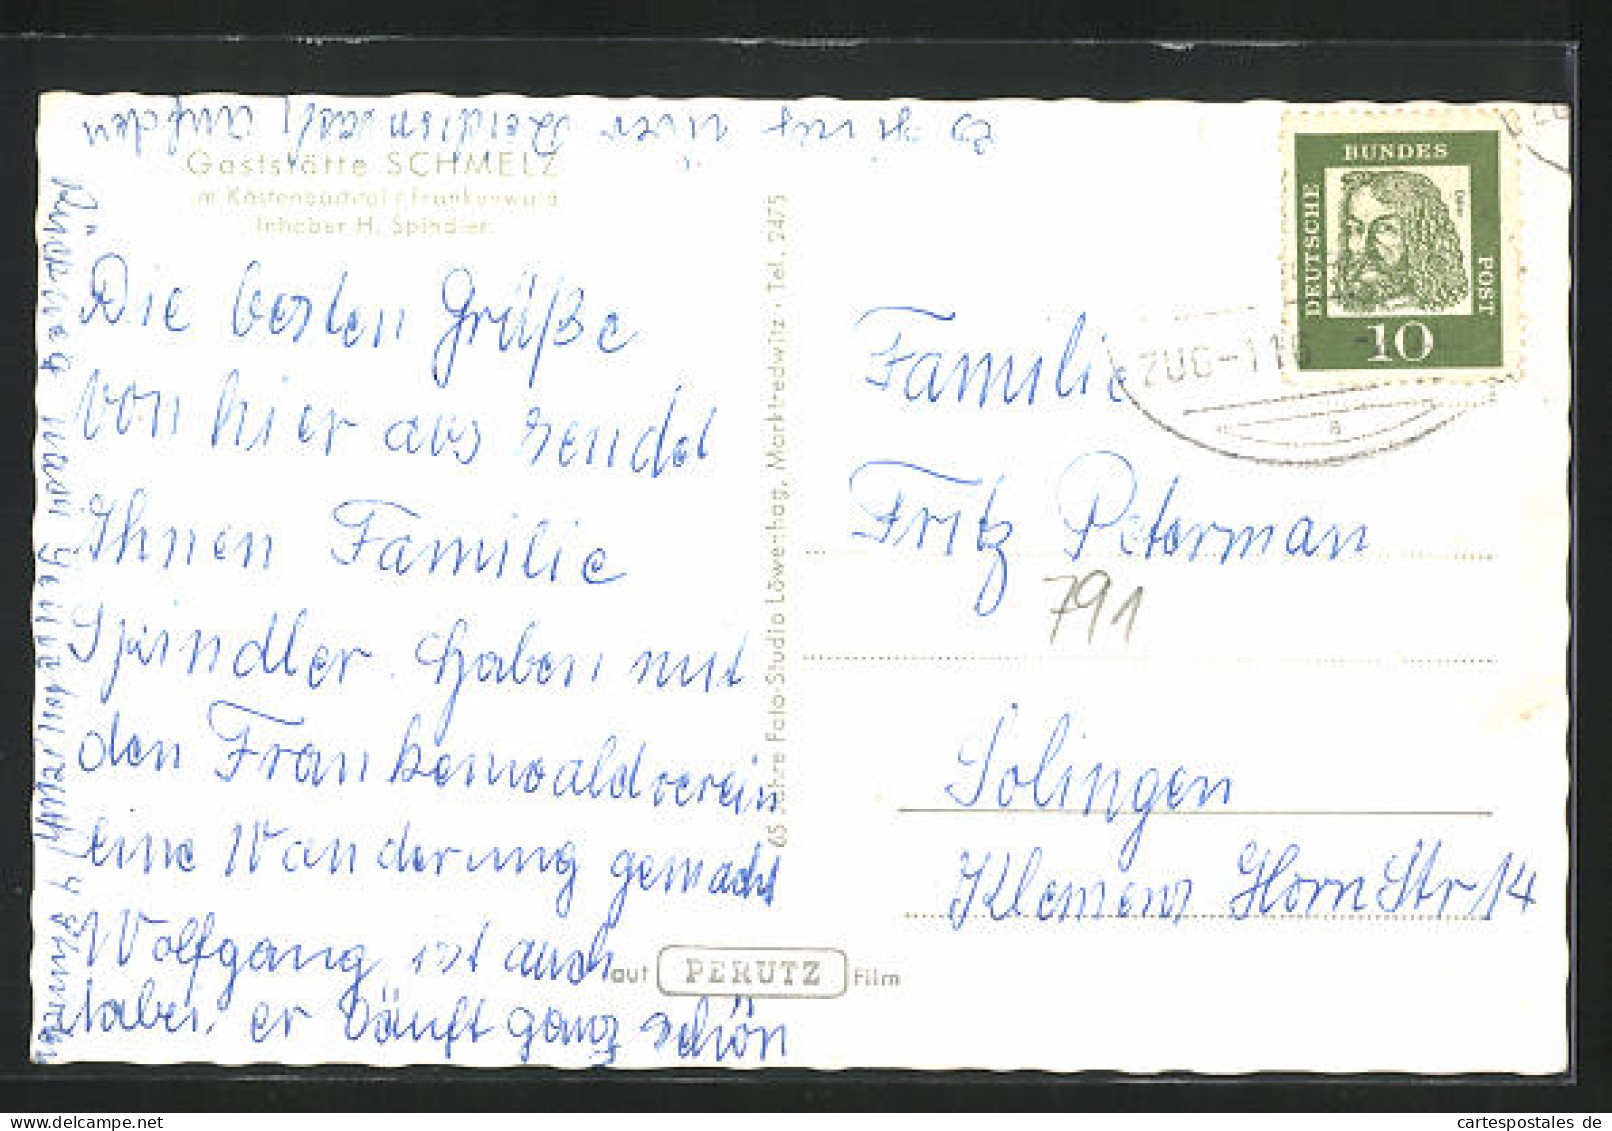 Gaststätte SCHMELZ
im Köstenbachtal / Frankenwald
Inhaber H. Spindler
Die besten Grüße
von hier aus sendet
Ihnen Familie
Spindler. Haben mit
den Frankenwaldverein
eine Wanderung gemacht
Wolfgang ist auch
dabei, er läuft ganz schön
Es ging über auf den
65 Jahre Foto-Studio Löwenhag, Marktredwitz · Tel. 2475
auf PERUTZ Film
DEUTSCHE BUNDES POST
10
ZUG-116
a
Familie
Fritz Peterman
791
Solingen
Klemens Horn Str 14
cartespostales de